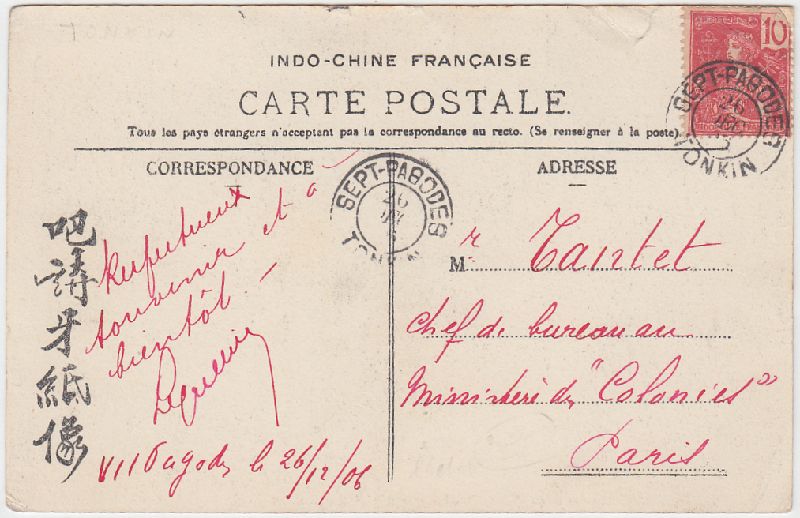 INDO-CHINE FRANÇAISE
CARTE POSTALE.
Tous les pays étrangers n'acceptent pas la correspondance au recto. (Se renseigner à la poste)
10
SEPT-PAGODES
26
TONKIN
CORRESPONDANCE
Respectueux
souvenir et à
bientôt. —
VII Pagodes le 26/12/06
吧講牙紙像
SEPT-PAGODES
26
ADRESSE
M r Tantet
Chef de bureau au
Ministère des "Colonies"
Paris